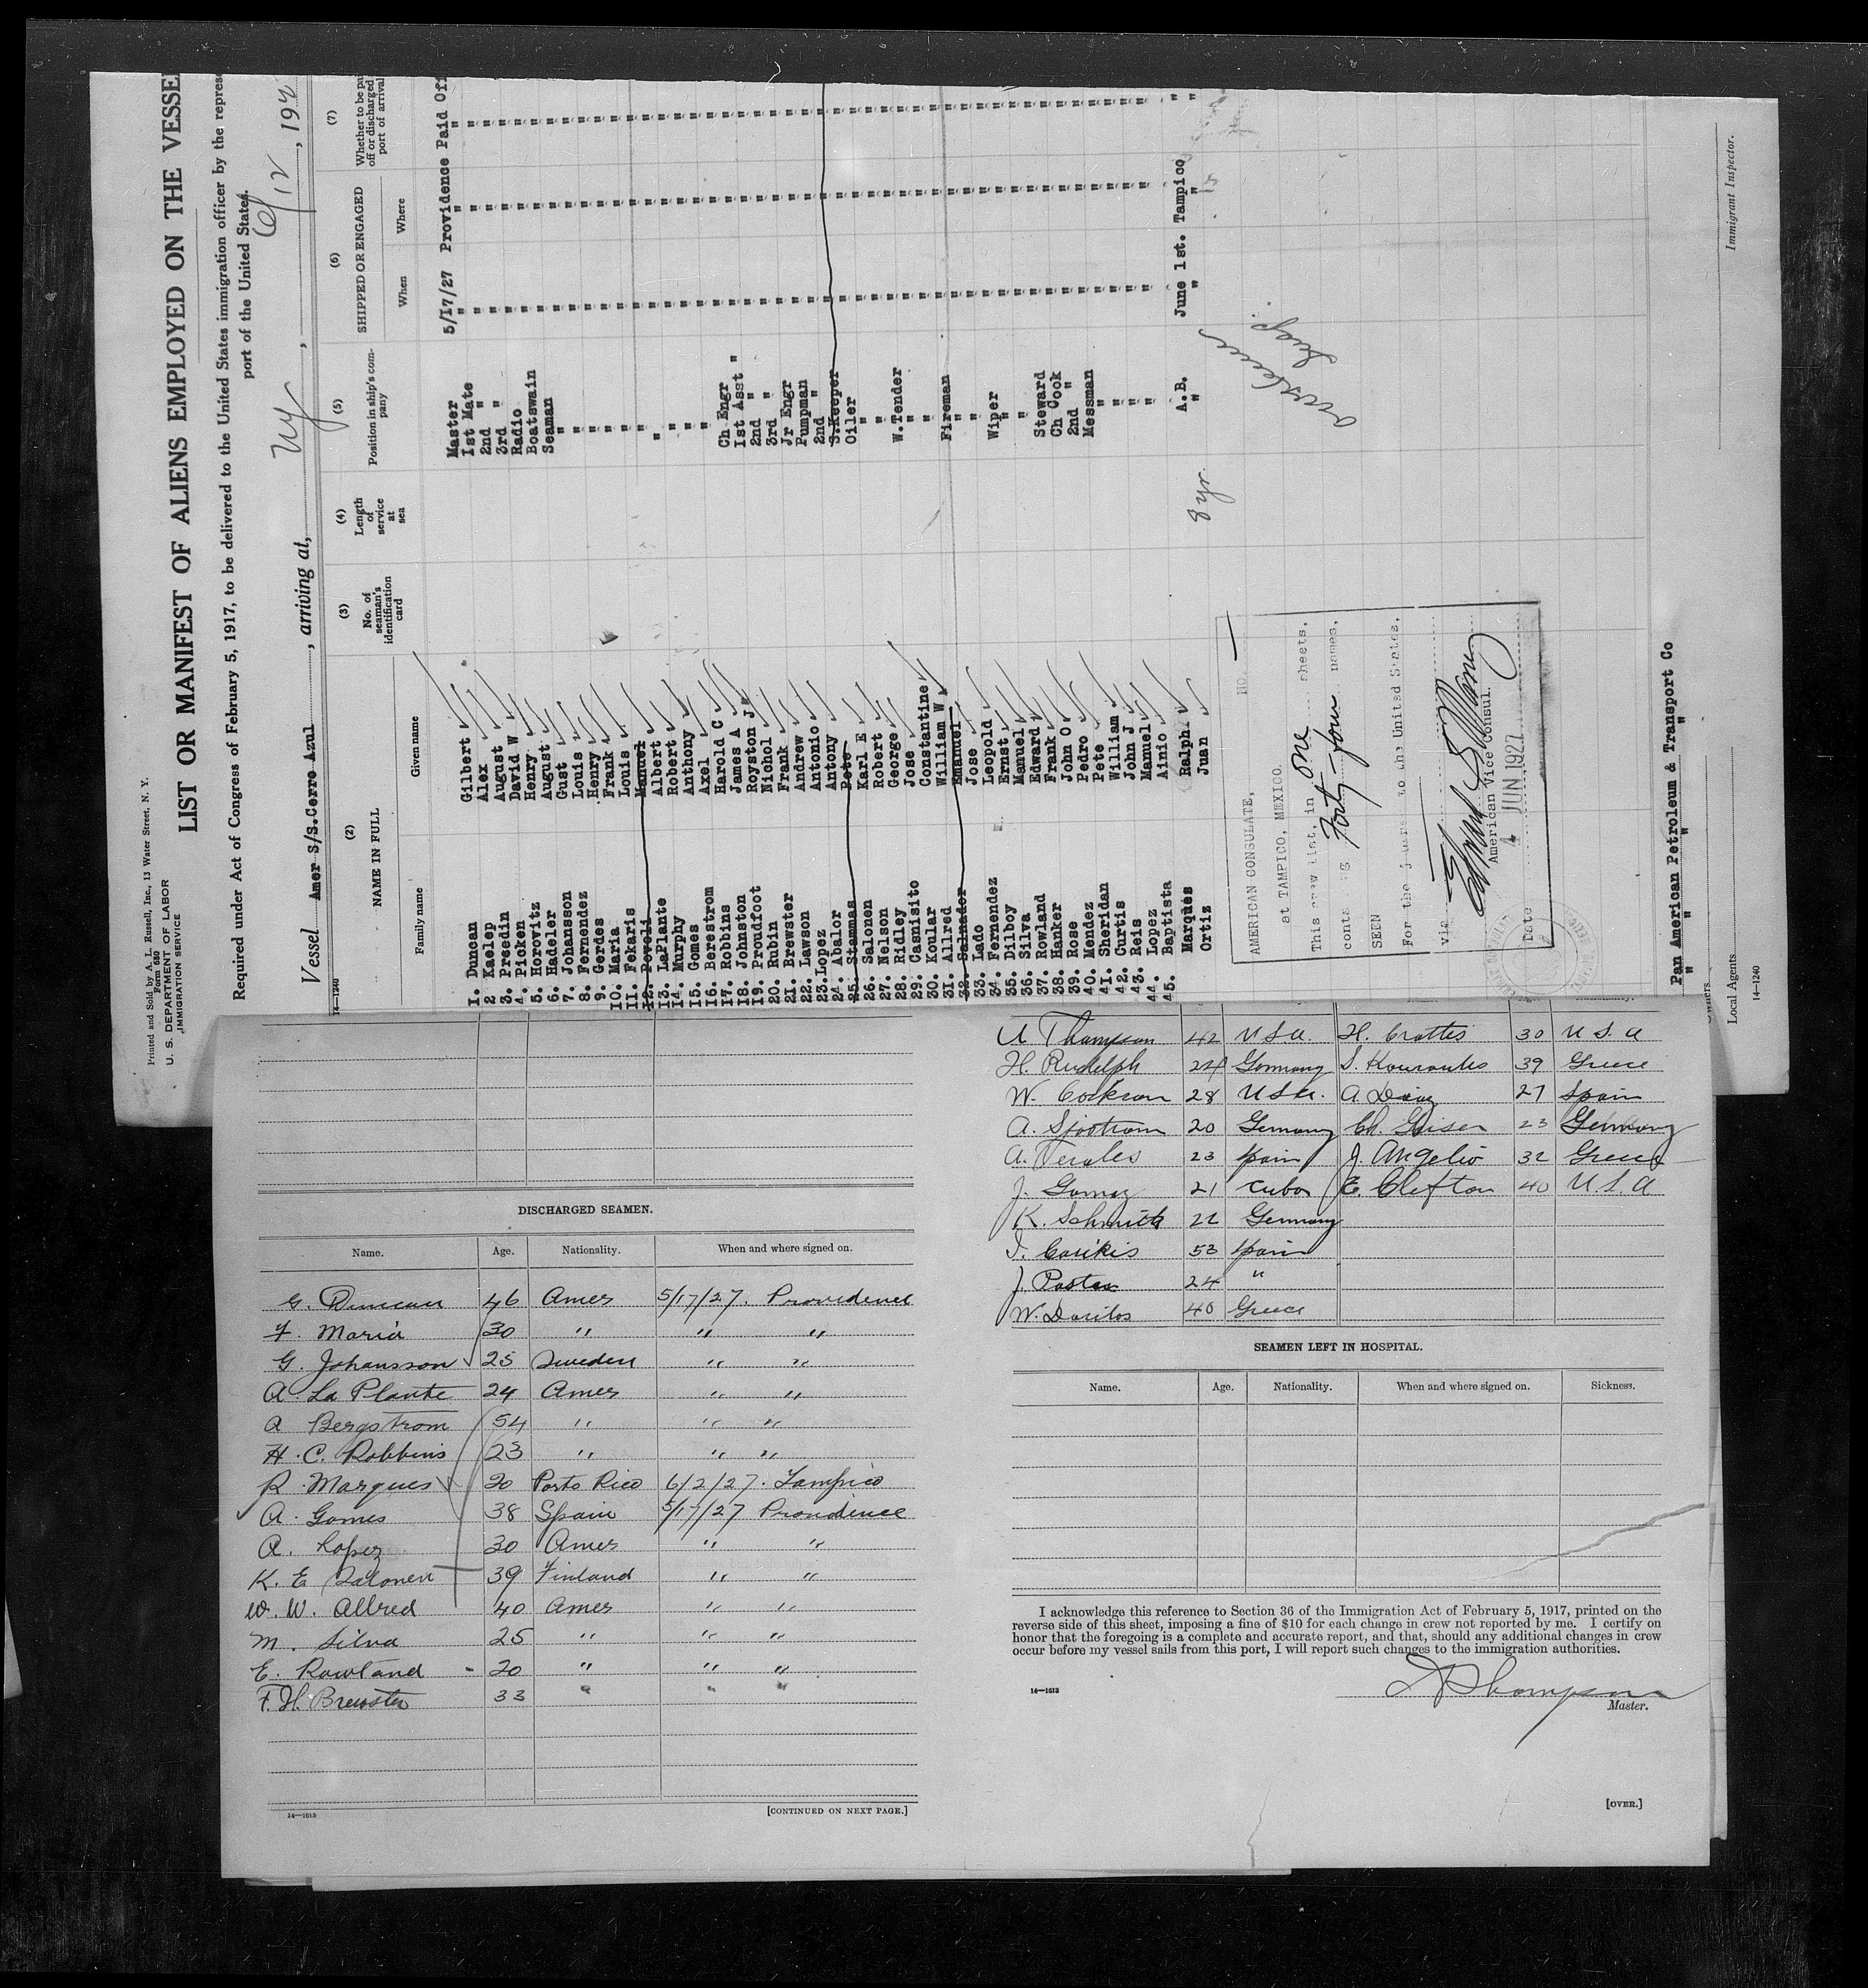 Printed and Sold by A. L. Russell, Inc., 13 Water Street, N. Y.
Form 680
U. S. DEPARTMENT OF LABOR
IMMIGRATION SERVICE
LIST OR MANIFEST OF ALIENS EMPLOYED ON THE VESSE
Required under Act of Congress of February 5, 1917, to be delivered to the United States immigration officer by the represe
port of the United States.
Vessel Amer S/s.Cerro Azul, arriving at, NY, 6/12, 192
14-1240
(2) (3) (4) (5) (6) (7)
NAME IN FULL
Family name Given name
No. of seaman's identification card
Length of service at sea
Position in ship's company
SHIPPED OR ENGAGED
When Where
Whether to be pa
off or discharged
port of arrival
1. Duncan Gilbert Master 5/17/27 Providence Paid Off
2 Kaelep Alex 1st Mate " " "
3. Preedin August 2nd " " " "
4. Picken David W 3rd " " " "
5. Horovitz Henry Radio " " "
6. Hadeler August Boatswain " " "
7. Johansson Gust Seaman " " "
8. Fernendez Louis " " " "
9. Gerdes Henry " " " "
10. Maria Frank " " " "
11. Fekaris Louis " " " "
12. Poveli Manuel " " " "
13. LaPlante Albert " " " "
14. Murphy Robert " " " "
15. Gomes Anthony " " " "
16. Berestrom Axel " " " "
17. Robbins Harold C Ch Engr " " "
18. Johnston James A 1st Asst " " " "
19. Proudfoot Royston J 2nd " " " "
20. Rubin Nichol 3rd " " " "
21. Brewster Frank Jr Engr " " "
22. Lawson Andrew Pumpman " " "
23. Lopez Antonio 2nd " " " "
24. Abalor Antony S.Keeper " " "
25. Siammas Pete Oiler " " "
26. Salonen Karl E " " " "
27. Nelson Robert " " " "
28. Ridley George W.Tender " " "
29. Casnisito Jose " " " "
30. Koular Constantine " " " "
31. Allred William W Fireman " " "
32. Salnador Emanuel " " " "
33. Lado Jose " " " "
34. Fernendez Leopold Wiper " " "
35. Dilboy Ernst " " " "
36. Silva Manuel " " " "
37. Rowland Edward Steward " " "
38. Hanker Frank Ch Cook " " "
39. Rose John O 2nd " " " "
40. Mendez Pedro Messman " " "
41. Sheridan Pete " " " "
42. Curtis William " " " "
43. Reis John J " " " "
44. Lopez Manuel " " " "
45. Baptista Ainio
Marques Ralph A.B. June 1st. Tampico "
Ortiz Juan 8 yr. " " " "
AMERICAN CONSULATE, NO.
at TAMPICO, MEXICO.
This crew list, in one sheets,
containing Forty four names,
SEEN
For the journey to the United States,
via
American Vice Consul.
Date 4 JUN 1927
Pan American Petroleum & Transport Co
" " " "
Owners.
Local Agents.
14-1240
Immigrant Inspector.
DISCHARGED SEAMEN.
Name. Age. Nationality. When and where signed on.
G. Duncan 46 Amer 5/17/27. Providence
F. Maria 30 " " "
G. Johansson 25 Sweden " "
A. La Plante 24 Amer " "
A Bergstrom 54 " " "
H. C. Robbins 23 " " "
R. Marques 20 Porto Rico 6/2/27. Tampico
A. Gomes 38 Spain 5/17/27 Providence
A. Lopez 30 Amer " "
K. E Salonen 39 Finland " "
W. W. Allred 40 Amer " "
M. Silva 25 " " "
E. Rowland - 20 " " "
F. H. Brewster 33 " " "
14—1613
[CONTINUED ON NEXT PAGE.]
A Thompson 42 U S A. H. Crattis 30 U S. A
H. Rudolph 24 Germany S. Kourantes 39 Greece
W. Cockran 28 U S A. A Diaz 27 Spain
A. Sjostrom 20 Germany Ch. Geiser 23 Germany
A. Perales 23 Spain J. Angelio 32 Greece
J. Gomez 21 Cuba E. Clefton 40 U. S. A
K. Schmitt 22 Germany
I. Carikis 53 Spain
J. Pastor 24 "
W. Daritos 40 Greece
SEAMEN LEFT IN HOSPITAL.
Name. Age. Nationality. When and where signed on. Sickness.
I acknowledge this reference to Section 36 of the Immigration Act of February 5, 1917, printed on the
reverse side of this sheet, imposing a fine of $10 for each change in crew not reported by me. I certify on
honor that the foregoing is a complete and accurate report, and that, should any additional changes in crew
occur before my vessel sails from this port, I will report such changes to the immigration authorities.
14—1613
Thompson
Master.
[OVER.]